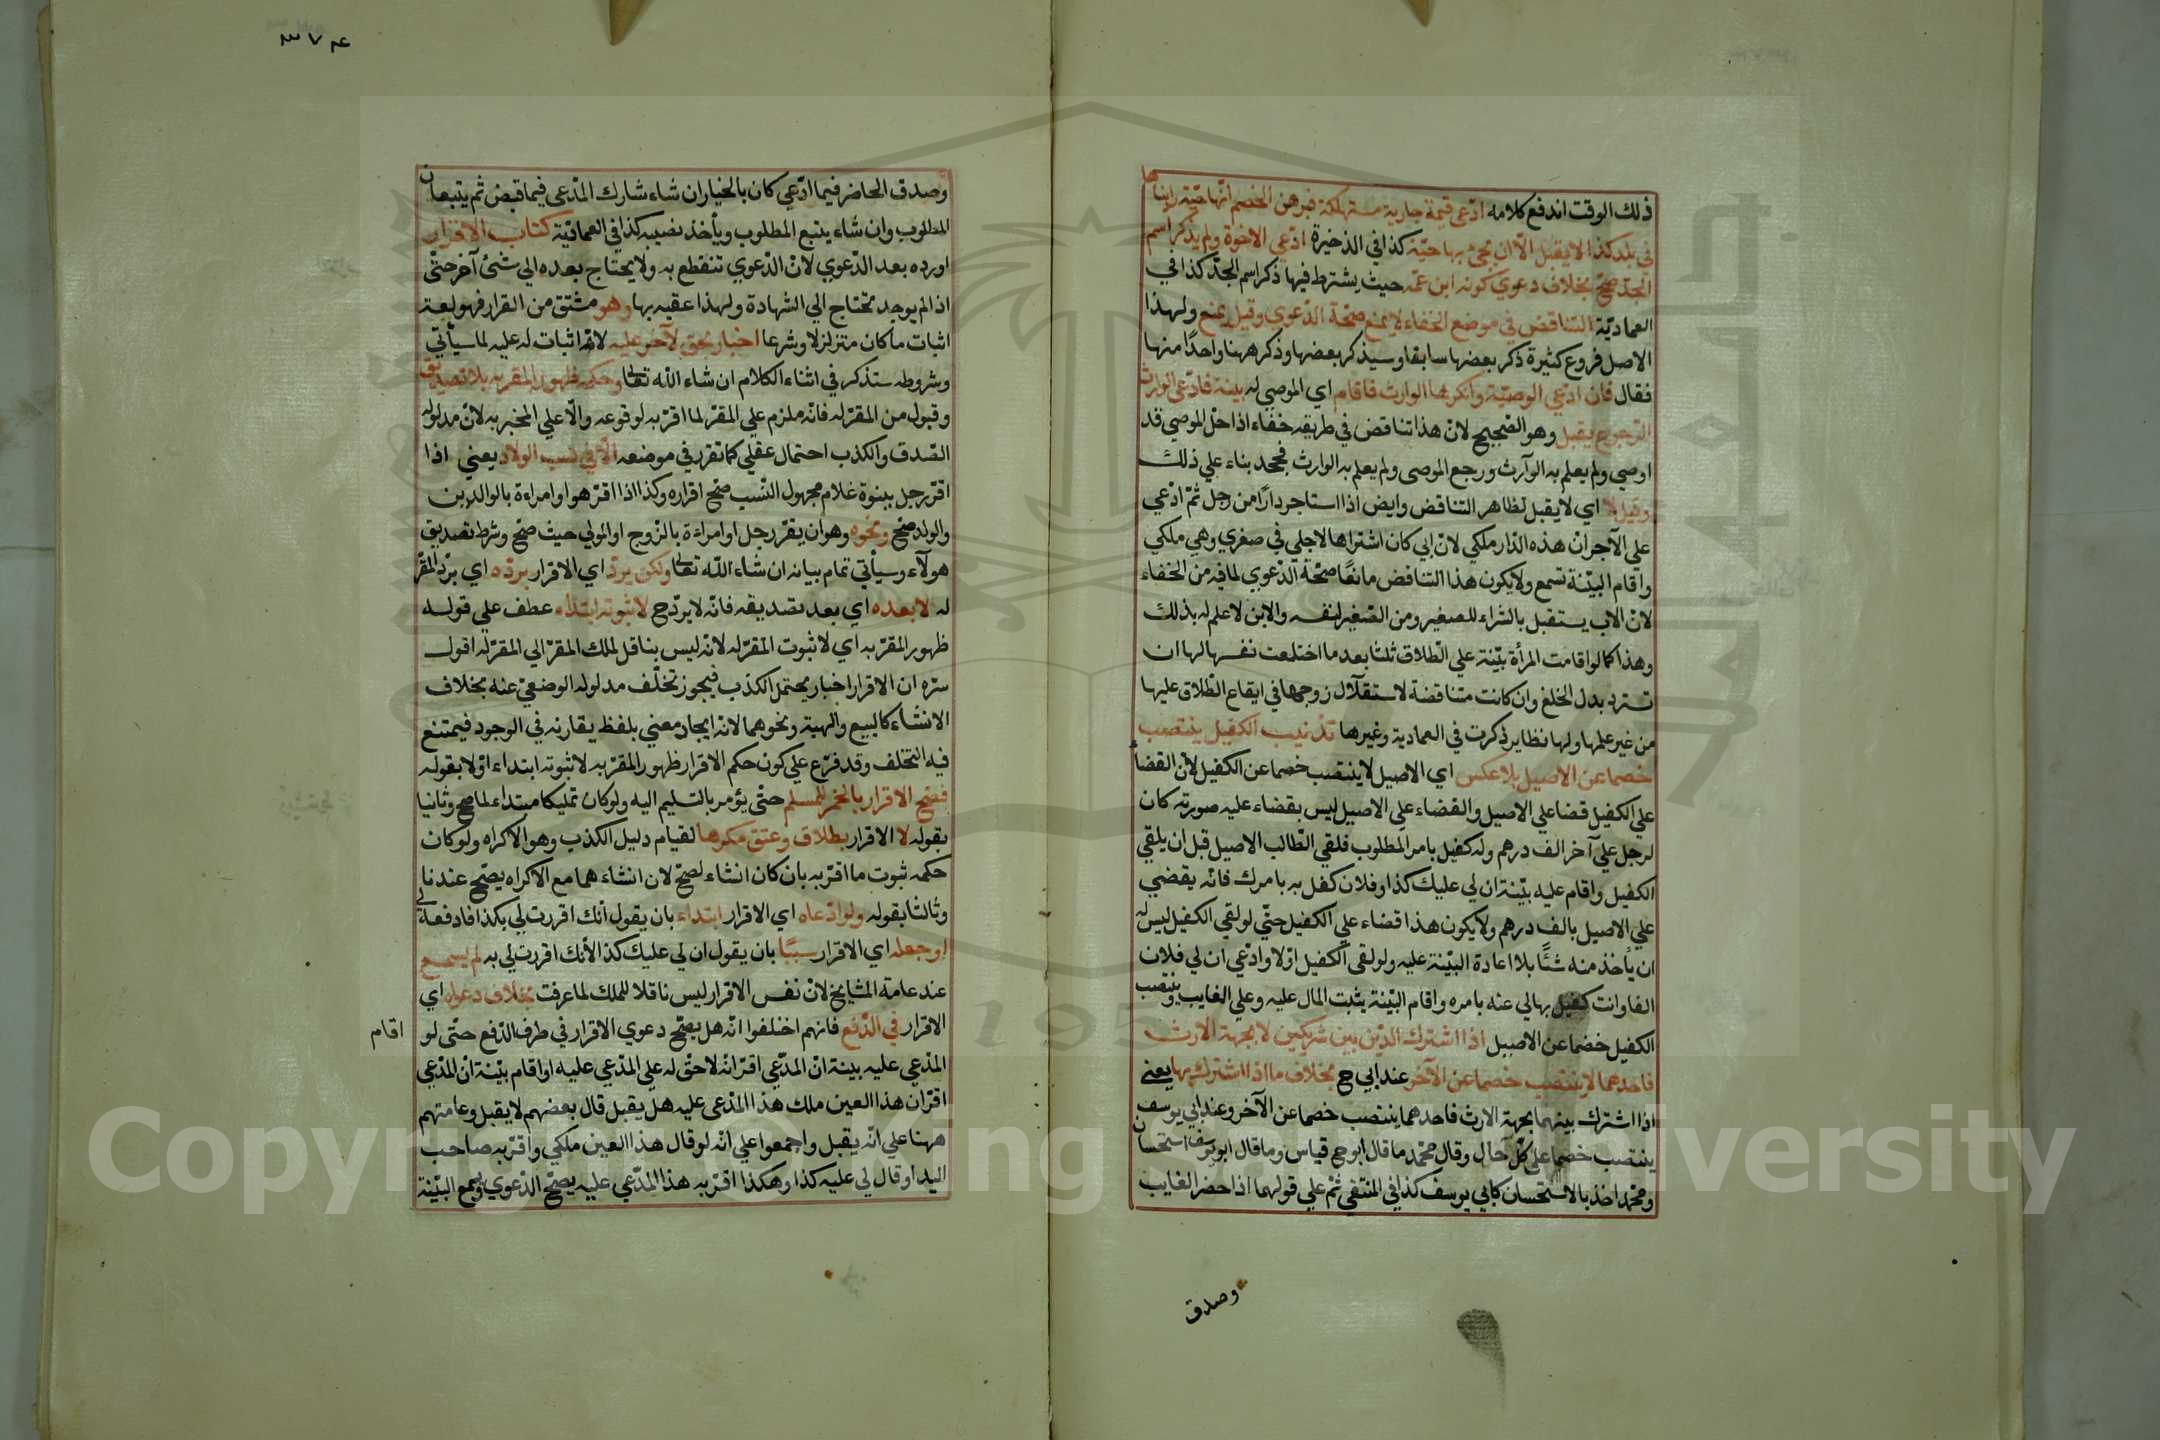 ذلك الوقت اندفع كلامه ادّعى قيمة جارية مستهلكة فبرهن الخصم انّها حيّة رايناها
في بلد كذا لا يقبل الّا ان يجئ بها حيّة كذا في الذخيرة ادّعي الاخوة ولم يذكر اسم
الجدّ صحّ بخلاف دعوي كونه ابن عمّه حيث يشترط فيها ذكر اسم الجدّ كذا في
العماديّة التناقض في موضع الخفاء لا يمنع صحّة الدّعوي وقيل يمنع ولهذا
الاصل فروع كثيرة ذكر بعضها سابقا وسيذكر بعضها وذكر ههنا واحدًا منها
فقال فان ادّعي الوصيّة وانكرها الوارث فاقام اي الموصي له بينة فادّعي الوارث
الرجوع يقبل وهو الصّحيح لانّ هذا تناقض في طريقه خفاء اذا حلّ الموصي قد
اوصي ولم يعلم به الوآرث ورجع الموصى ولم يعلم به الوارث فجحد بناء علي ذلك
وقيل لا اي لا يقبل لظاهر التناقض وايض اذا استاجر دارًا من رجل ثمّ ادّعي
علي الآجر انّ هذه الدّار ملكي لانّ ابي كان اشتراها لاجلي في صغري وهي ملكي
واقام البيّنة تسمع ولا يكون هذا التناقض مانعًا صحّة الدّعوي لما فيه من الخفاء
لانّ الاب يستقبل بالشراء للصغير ومن الصّغير لنفسه والابن لا علم له بذلك
وهذا كما لو اقامت المرأة بيّنة علي الطّلاق ثلثا بعد ما اختلعت نفسها لها ان
تسترد بدل الخلع وان كانت متناقضة لاستقلال زوجها في ايقاع الطّلاق عليها
من غير علمها ولها نظاير ذكرت في العمادية وغيرها تذنيب الكفيل ينتصب
خصما عن الاصيل بلا عكس اي الاصيل لا ينتصب خصما عن الكفيل لانّ القضاء
علي الكفيل قضا علي الاصيل والقضاء علي الاصيل ليس بقضاء عليه صورته كان
لرجل علي آخر الف درهم وله كفيل بامر المطلوب فلقي الطّالب الاصيل قبل ان يلقي
الكفيل واقام عليه بيّنة ان لي عليك كذا وفلان كفل به بامرك فانّه يقضي
علي الاصيل بالف درهم ولا يكون هذا قضاء علي الكفيل حتّي لو لقي الكفيل ليس له
ان يأخذ منه شئًا بلا اعادة البيّنة عليه ولو لقي الكفيل اوّلا وادّعي ان لي فلان
الفا وانت كفيل بها لي عنه بامره واقام البيّنة يثبت المال عليه وعلي الغايب وينتصب
الكفيل خصما عن الاصيل اذا اشترك الدّين بين شريكين لا بجهة الارث
فاحدهما لا ينتصب خصما عن الآخر عند ابي ح بخلاف ما اذا اشترك بها يعني
اذا اشترك بينهما بجهة الارث فاحدهما ينتصب خصما عن الآخر وعند ابي يوسف
ينتصب خصما علي كلّ حال وقال محمّد ما قال ابو ح قياس وما قال ابو يوسف استحسان
ومحمّد اخذ بالاستحسان كابي يوسف كذا في المنتقي ثمّ علي قولهما اذا حضر الغايب
وصدق
٣٧٤
وصدق الحاضر فيما ادّعي كان بالخيار ان شاء شارك المدّعي فيما قبض ثم يتبعان
المطلوب وان شاء يتبع المطلوب ويأخذ نصيبه كذا في العماديّة كتاب الاقرار
اورده بعد الدّعوي لانّ الدّعوي تنقطع به ولا يحتاج بعده الي شئ آخر حتّى
اذا لم يوجد تحتاج الي الشهادة ولهذا عقبه بها وهو مشتق من القرار فهو لغة
اثبات ما كان متزلزلا وشرعا اخبار بحق لآخر عليه لانّه اثبات له عليه لما سيأتي
وشروطه ستذكر في اثناء الكلام ان شاء اللّه تعالى وحكمه ظهور المقرّ به بلا تصديق
وقبول من المقرّ له فانّه ملزم علي المقرّ لما اقرّ به لوقوعه والّا علي المخبر به لانّ مدلوله
الصّدق والكذب احتمال عقلي كما تقرر في موضعه الّا في نسب الولاد يعني اذا
اقرّ رجل ببنوة غلام مجهول النّسب صحّ اقراره وكذا اذا اقرّ هو او امراءة بالوالدين
والولد صحّ ونحوه وهو ان يقرّ رجل او امراءة بالزّوج او المولي حيث صحّ وشرط تصديق
هولآء وسيأتي تمام بيانه ان شاء اللّه تعالى ولكن يردّ اي الاقرار بردّه اي بردّ المقرّ
له لا بعده اي بعد تصديقه فانّه لا يردّ ح لا ثبوته ابتداء عطف علي قوله
ظهور المقرّ به اي لا ثبوت المقرّ له لانّه ليس بناقل لملك المقرّ الي المقرّ له اقول
سرّه ان الاقرار اخبار يحتمل الكذب فيجوز تخلّف مدلوله الوضعيّ عنه بخلاف
الانشاء كالبيع والهبة ونحوهما لانّه ايجاد معني بلفظ يقارنه في الوجود فيمتنع
فيه التخلف وقد فرّع علي كون حكم الاقرار ظهور المقرّ به لا ثبوته ابتداء اوّلا بقوله
فصحّ الاقرار بالخمر للمسلم حتّى يؤمر بالتسليم اليه ولو كان تمليكا مبتداء لما صح وثانيا
بقوله لا الاقرار بطلاق وعتق مكرها لقيام دليل الكذب وهو الاكراه ولو كان
حكمه ثبوت ما اقرّ به بان كان انشاء لصحّ لان انشاء هما مع الاكراه يصحّ عندنا
وثالثا بقوله ولو ادّعاه اي الاقرار ابتداء بان يقول انّك اقررت لي بكذا فادفعه لي
او جعله اي الاقرار سببًا بان يقول ان لي عليك كذا لأنك اقررت لي به لم يسمع
عند عامة المشايخ لانّ نفس الاقرار ليس ناقلا للملك لما عرفت بخلاف دعواه اي
الاقرار في الدّفع فانهم اختلفوا انّه هل يصحّ دعوي الاقرار في طرف الدّفع حتّى لو اقام
المدّعي عليه بينة انّ المدّعي اقرّ انّه لا حقّ له علي المدّعي عليه او اقام بيّنة انّ المدّعي
اقرّ ان هذا العين ملك هذا المدّعى عليه هل يقبل قال بعضهم لا يقبل وعامتهم
ههنا علي انّه يقبل واجمعوا علي انّه لو قال هذا العين ملكي واقرّ به صاحب
اليد او قال لي عليه كذا وهكذا اقرّ به هذا المدّعي عليه يصحّ الدّعوي ويسمع البيّنة
Copyright © King Saud University